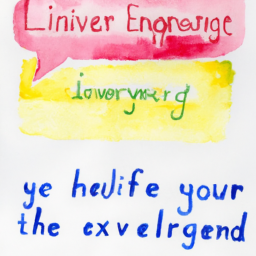 Liniver Engnesrige
iovorywerg
ye hedife your
the exvelrgend